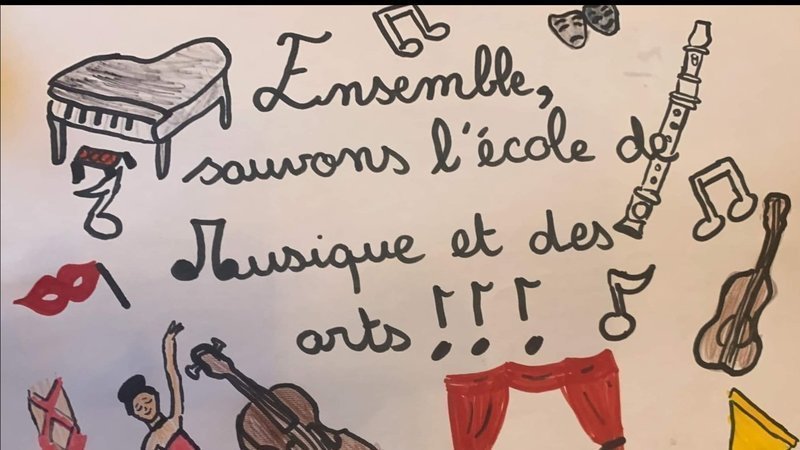 Ensemble,
sauvons l'école de
Musique et des
arts !!!